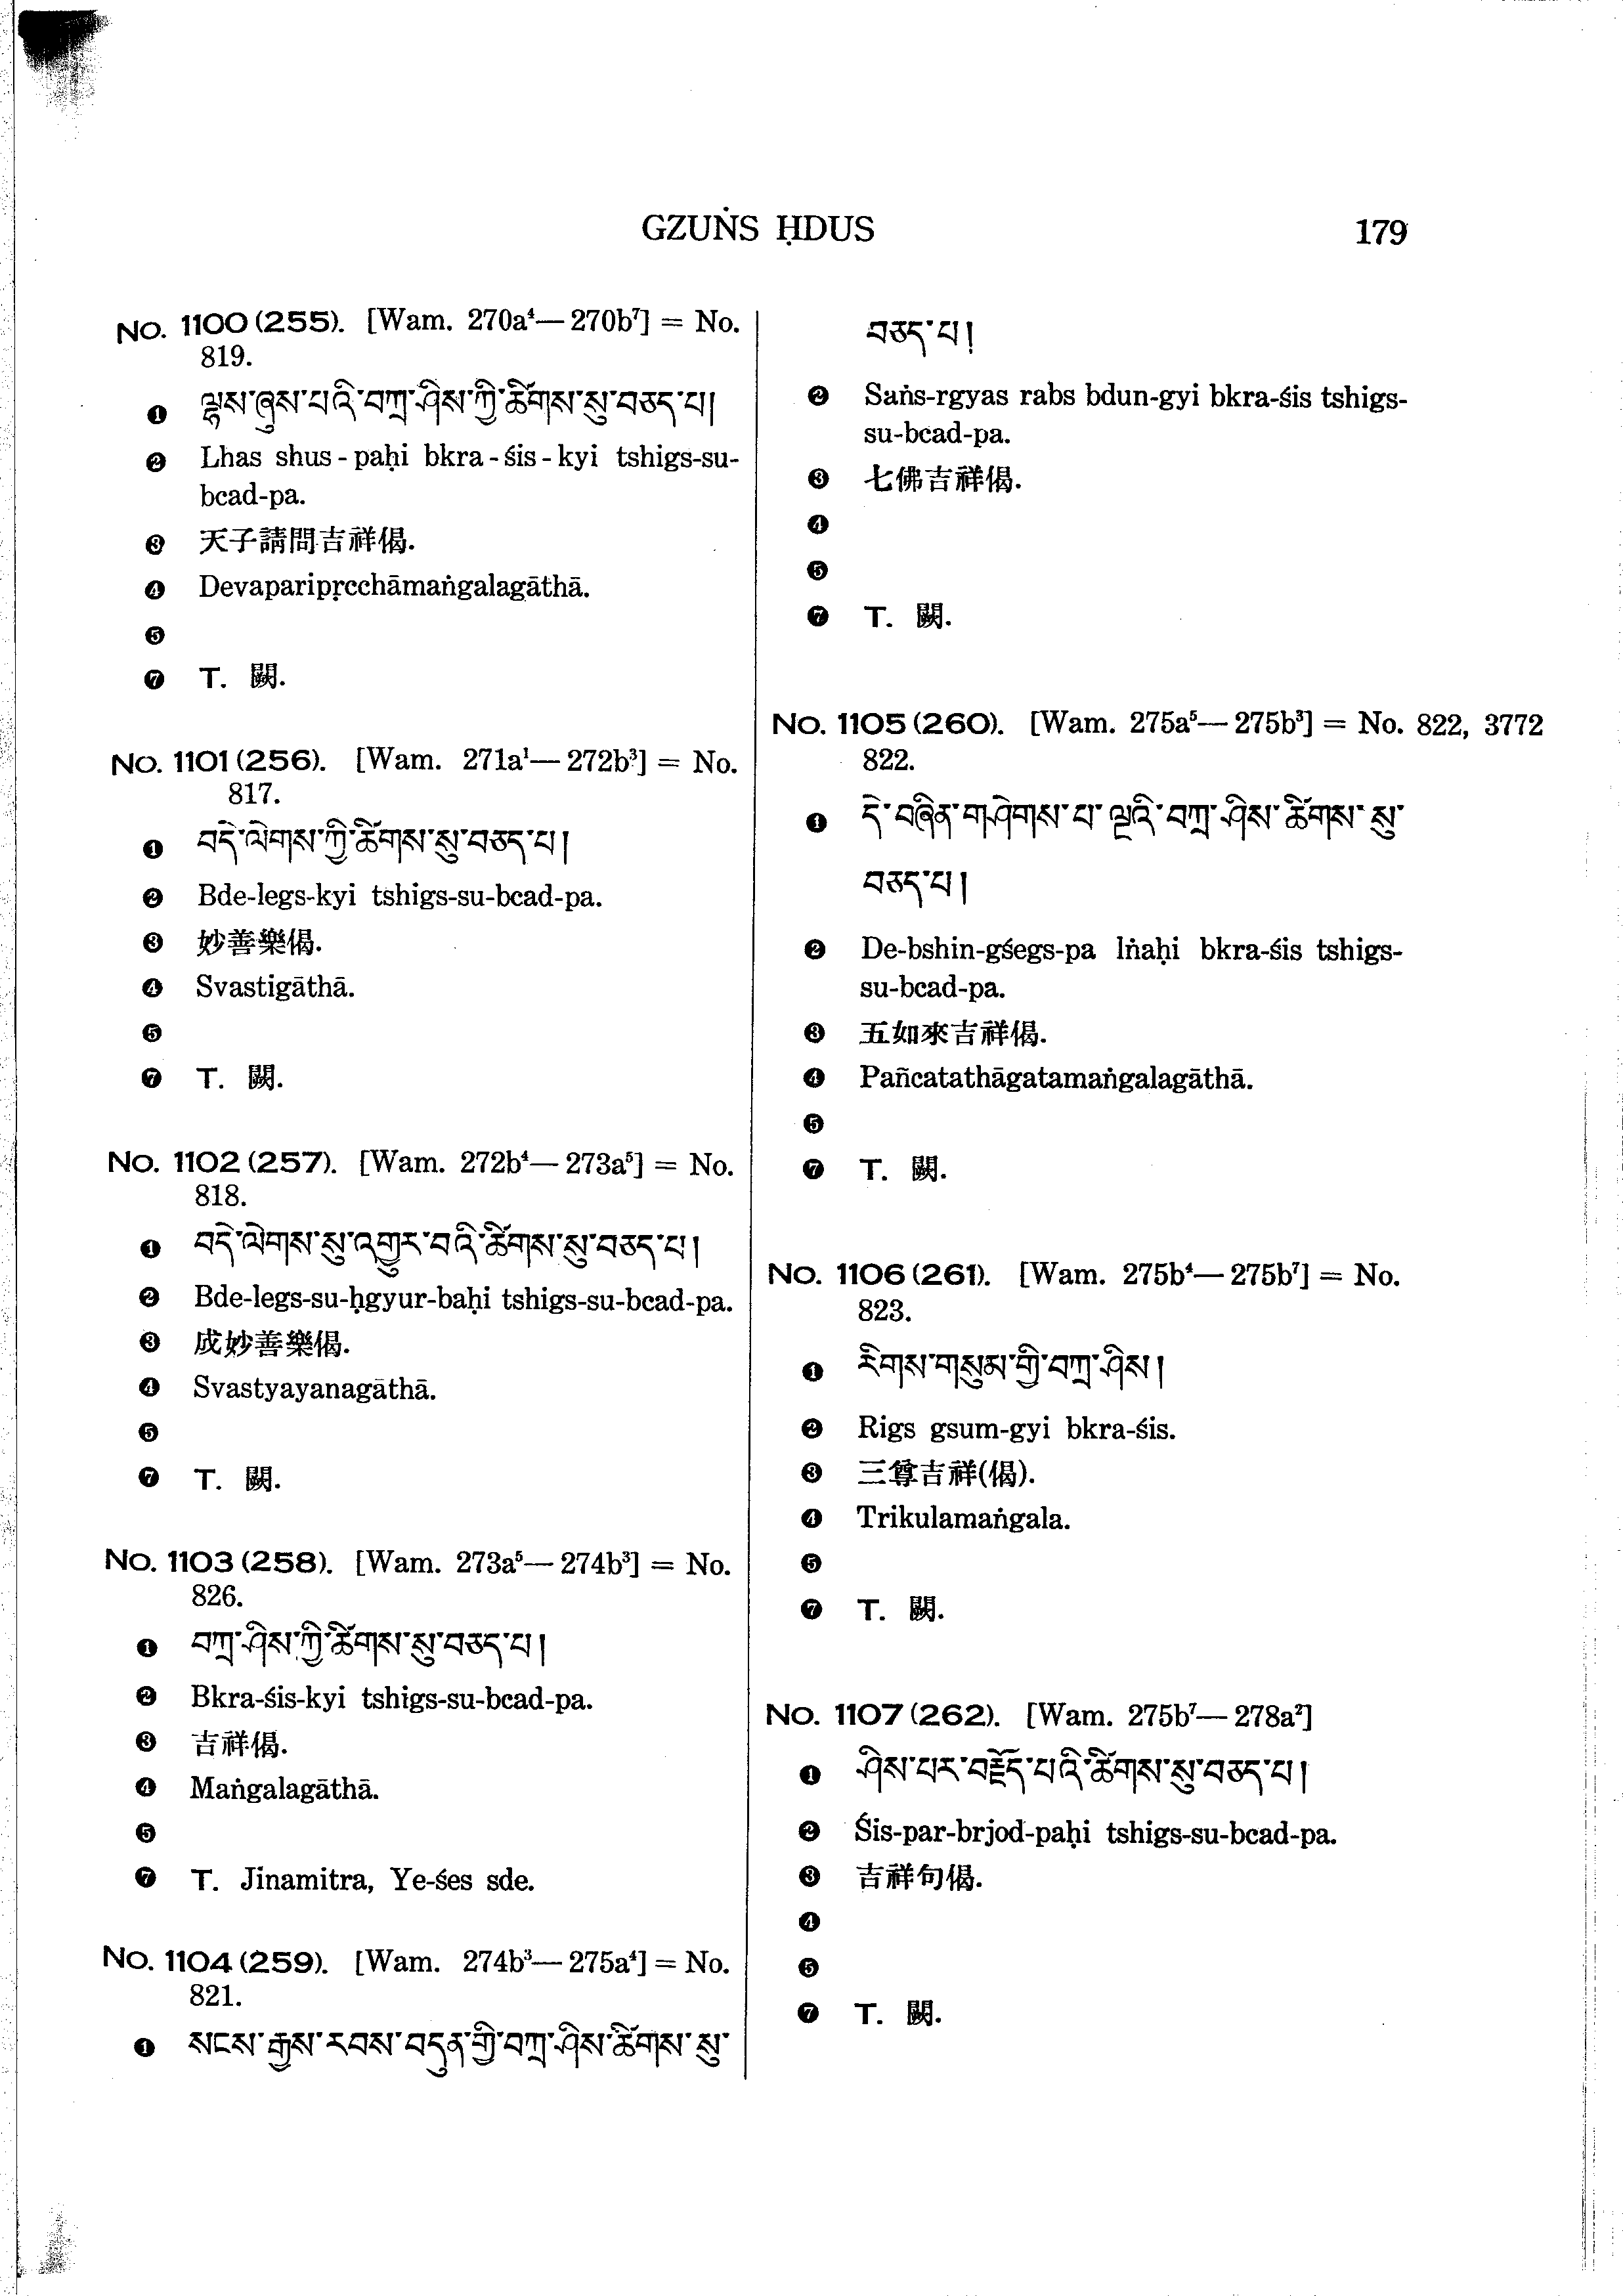 GZUṄS ḤDUS
179
No. 1100 (255). [Wam. 270a⁴—270b⁷] = No.
819.
❶ ལྷས་ཞུས་པའི་བཀྲ་ཤིས་ཀྱི་ཚིགས་སུ་བཅད་པ།
❷ Lhas shus-paḥi bkra-śis-kyi tshigs-su-
bcad-pa.
❸ 天子請問吉祥偈.
❹ Devaparipṛcchāmaṅgalagāthā.
❺
❼ T. 闕.
No. 1101 (256). [Wam. 271a¹—272b³] = No.
817.
❶ བདེ་ལེགས་ཀྱི་ཚིགས་སུ་བཅད་པ།
❷ Bde-legs-kyi tshigs-su-bcad-pa.
❸ 妙善樂偈.
❹ Svastigāthā.
❺
❼ T. 闕.
No. 1102 (257). [Wam. 272b⁴—273a⁵] = No.
818.
❶ བདེ་ལེགས་སུ་འགྱུར་བའི་ཚིགས་སུ་བཅད་པ།
❷ Bde-legs-su-ḥgyur-baḥi tshigs-su-bcad-pa.
❸ 成妙善樂偈.
❹ Svastyayanagāthā.
❺
❼ T. 闕.
No. 1103 (258). [Wam. 273a⁵—274b³] = No.
826.
❶ བཀྲ་ཤིས་ཀྱི་ཚིགས་སུ་བཅད་པ།
❷ Bkra-śis-kyi tshigs-su-bcad-pa.
❸ 吉祥偈.
❹ Maṅgalagāthā.
❺
❼ T. Jinamitra, Ye-śes sde.
No. 1104 (259). [Wam. 274b³—275a⁴] = No.
821.
❶ སངས་རྒྱས་རབས་བདུན་གྱི་བཀྲ་ཤིས་ཚིགས་སུ་
བཅད་པ།
❷ Saṅs-rgyas rabs bdun-gyi bkra-śis tshigs-
su-bcad-pa.
❸ 七佛吉祥偈.
❹
❺
❼ T. 闕.
No. 1105 (260). [Wam. 275a⁵—275b³] = No. 822, 3772
822.
❶ དེ་བཞིན་གཤེགས་པ་ལྔའི་བཀྲ་ཤིས་ཚིགས་སུ་
བཅད་པ།
❷ De-bshin-gśegs-pa lṅaḥi bkra-śis tshigs-
su-bcad-pa.
❸ 五如來吉祥偈.
❹ Pañcatathāgatamaṅgalagāthā.
❺
❼ T. 闕.
No. 1106 (261). [Wam. 275b⁴—275b⁷] = No.
823.
❶ རིགས་གསུམ་གྱི་བཀྲ་ཤིས།
❷ Rigs gsum-gyi bkra-śis.
❸ 三尊吉祥(偈).
❹ Trikulamaṅgala.
❺
❼ T. 闕.
No. 1107 (262). [Wam. 275b⁷—278a²]
❶ ཤིས་པར་བརྗོད་པའི་ཚིགས་སུ་བཅད་པ།
❷ Śis-par-brjod-paḥi tshigs-su-bcad-pa.
❸ 吉祥句偈.
❹
❺
❼ T. 闕.